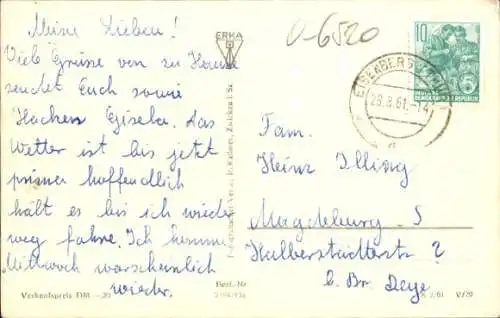 Meine Lieben!
Viele Grüsse von zu Hause
sendet Euch sowie
Hachen Gisela. Das
Wetter ist bis jetzt
prima hoffendlich
hält es bis ich wieder
weg fahre. Ich komme
Mittwoch warscheinlich
wieder.
Verkaufspreis DM -,20
Best.-Nr.
ERKA
0-6520
10
DEUTSCHE DEMOKRATISCHE REPUBLIK
EISENBERG
28.8.61.-14
Fam.
Heinz Illing
Magdeburg - S
Halberstädterstr. 2
b. Br. Deye
V/70